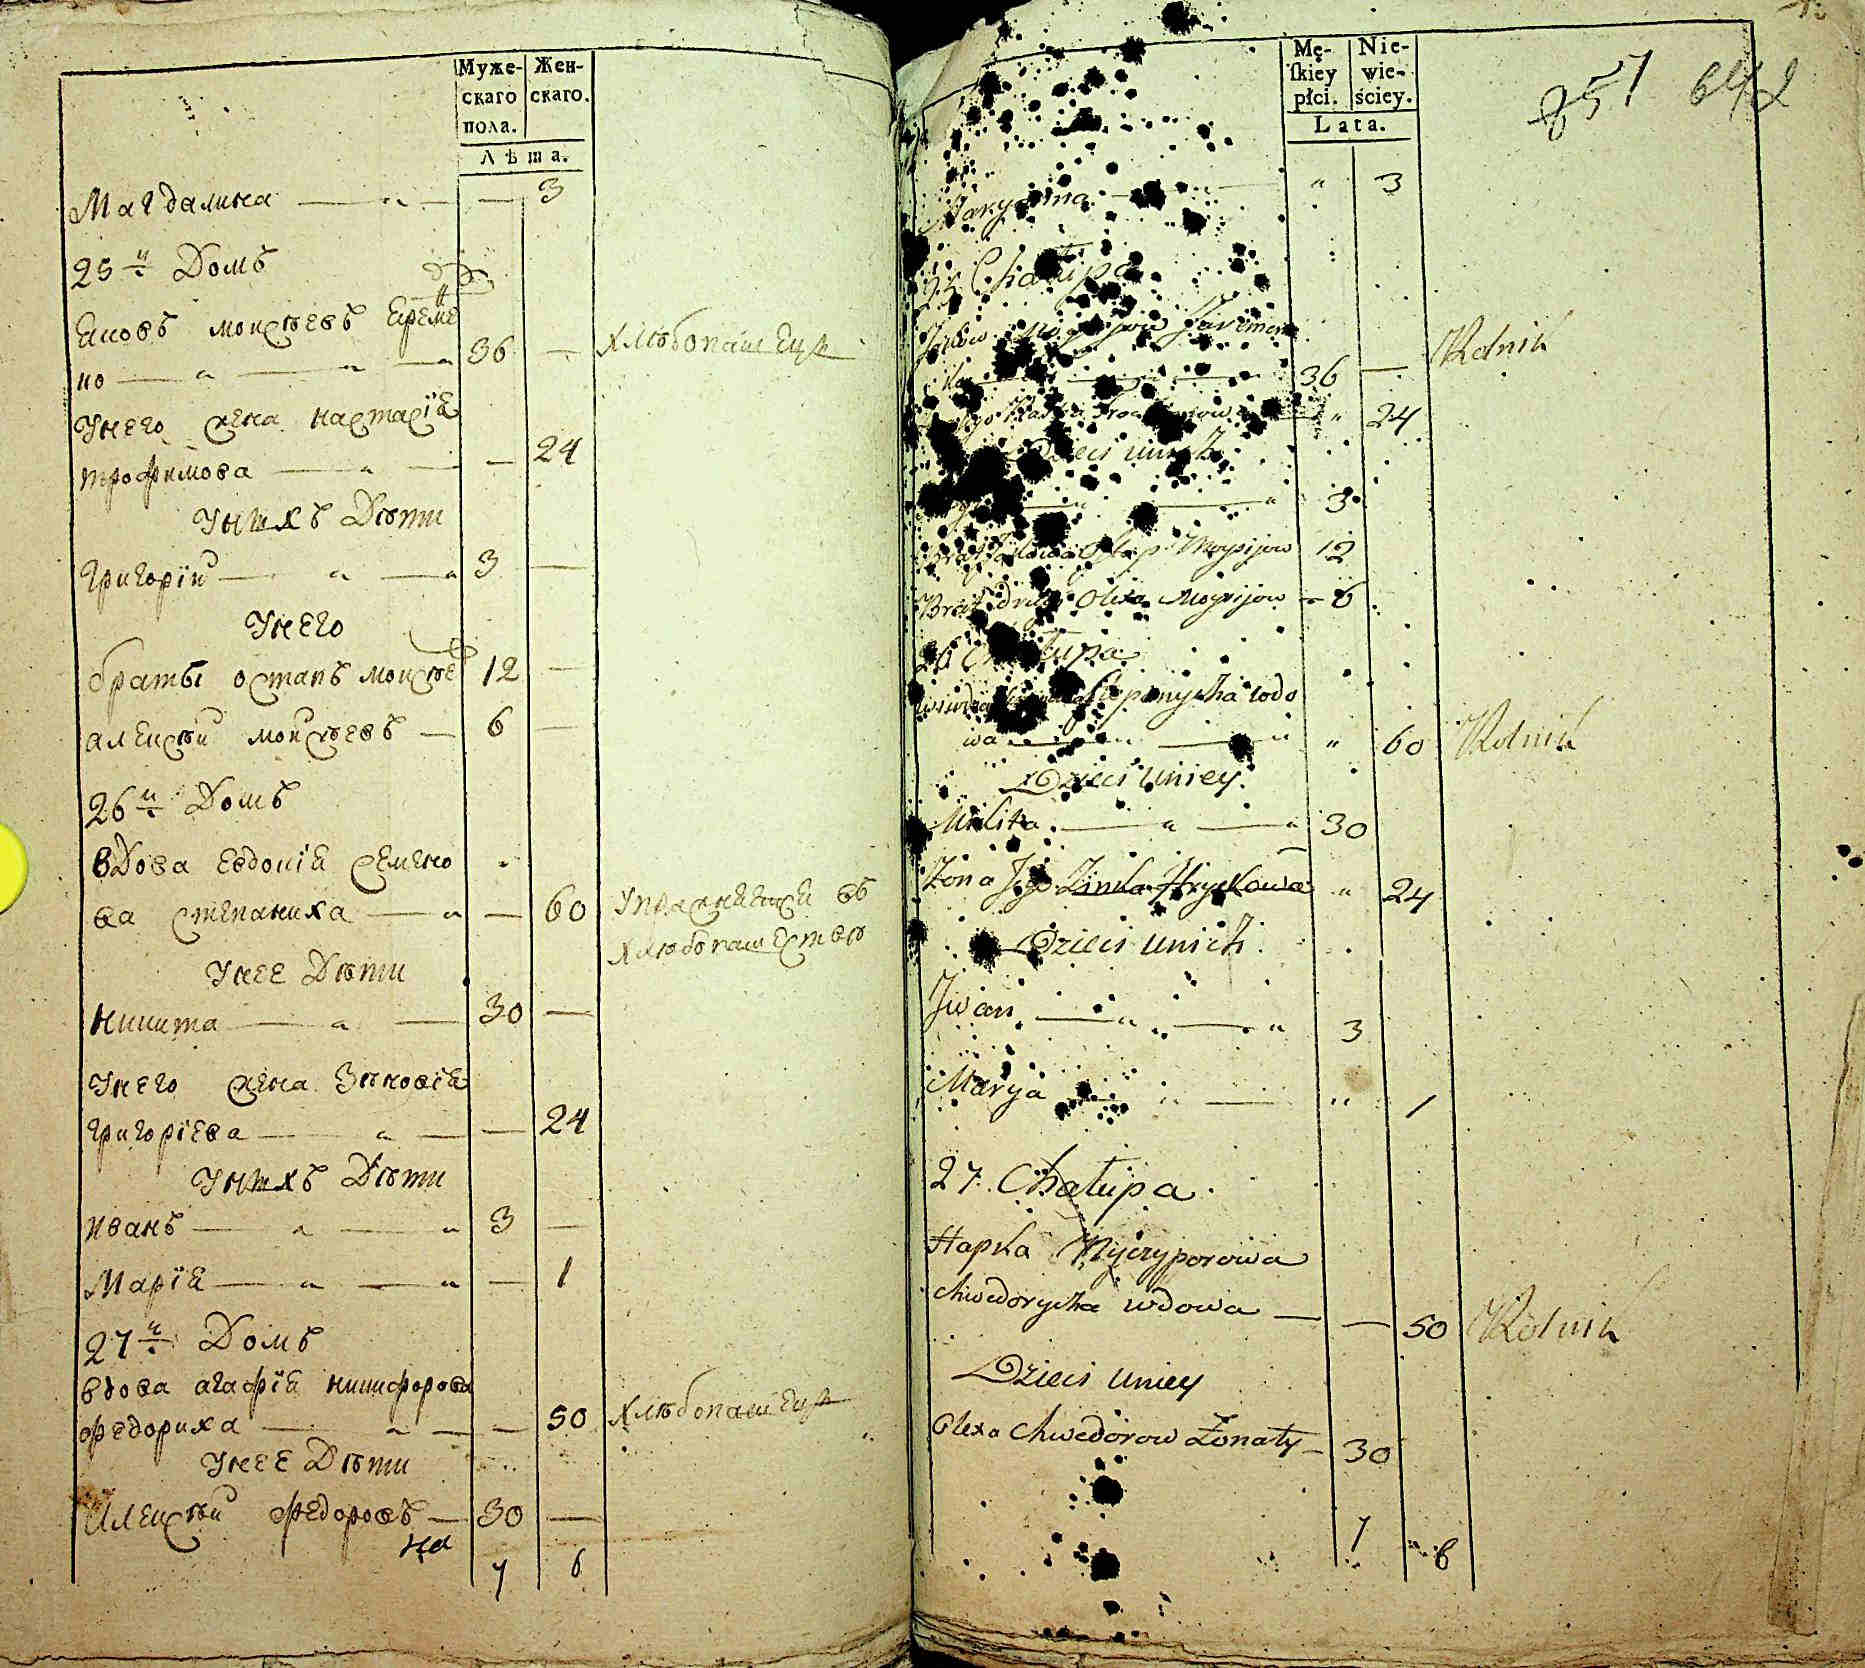 Муже- Жен-
скаго скаго.
пола.
Лѣта.
Магдалина — „ — — 3
25й Домъ
Яковъ моисѣевъ Ереме
но — „ — „ — „ 36 — хлѣбопашецъ
Унего жена настасія
трофимова — „ — — 24
Унихъ Дѣти
григорій — „ — „ 3 —
Унего
братъ остапъ моисѣе 12 —
алексѣй моисѣевъ — 6 —
26й Домъ
вдова евдокія семено
ва степаниха — „ — 60 Упражняется въ
хлѣбопашествѣ
Унее Дѣти
никита — „ — 30 —
Унего жена Зиновія
григоріева — „ — — 24
Унихъ Дѣти
иванъ — „ — „ 3 —
Марія — „ — „ — 1
27й Домъ
вдова агафія никифорова
федориха — „ — — 50 хлѣбопашецъ
Унее Дѣти
Алексѣй федоровъ — 30 —
на
7 6
Mę- Nie-
skiey wie-
płci. ściey.
Lata.
251 642
„ 3
Chałupa
36 — Rolnik
„ 24
Dzieci unich
3
Moysijow 12
Brat Olexa Moysijow — 6
26 Chałupa
Stepanycha wdo
wa — „ — „ „ 60 Rolnik
Dzieci uniey
Mikita — „ — „ 30
Żona Jego Zinka Hryckowa „ 24
Dzieci unich
Jwan — „ — „ 3
Marya — „ — „ 1
27. Chałupa
Hapka Nyczyporowa
Chwedorycha wdowa — — 50 Rolnik
Dzieci uniey
Olexa Chwedorow Żonaty — 30
7 „ 6